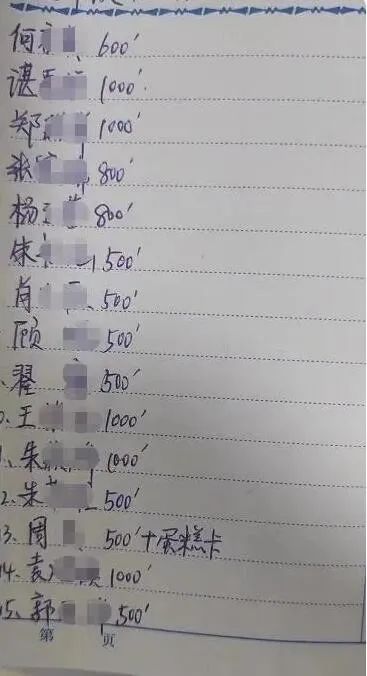 何 600'
谌 1000'
郑 1000'
张 800'
杨 800'
朱 500'
肖 500'
顾 500'
翟 500'
王 1000'
、朱 1000'
2、朱 500'
13、周 500'+蛋糕卡
14、袁 1000'
15、郭 500'
第 页